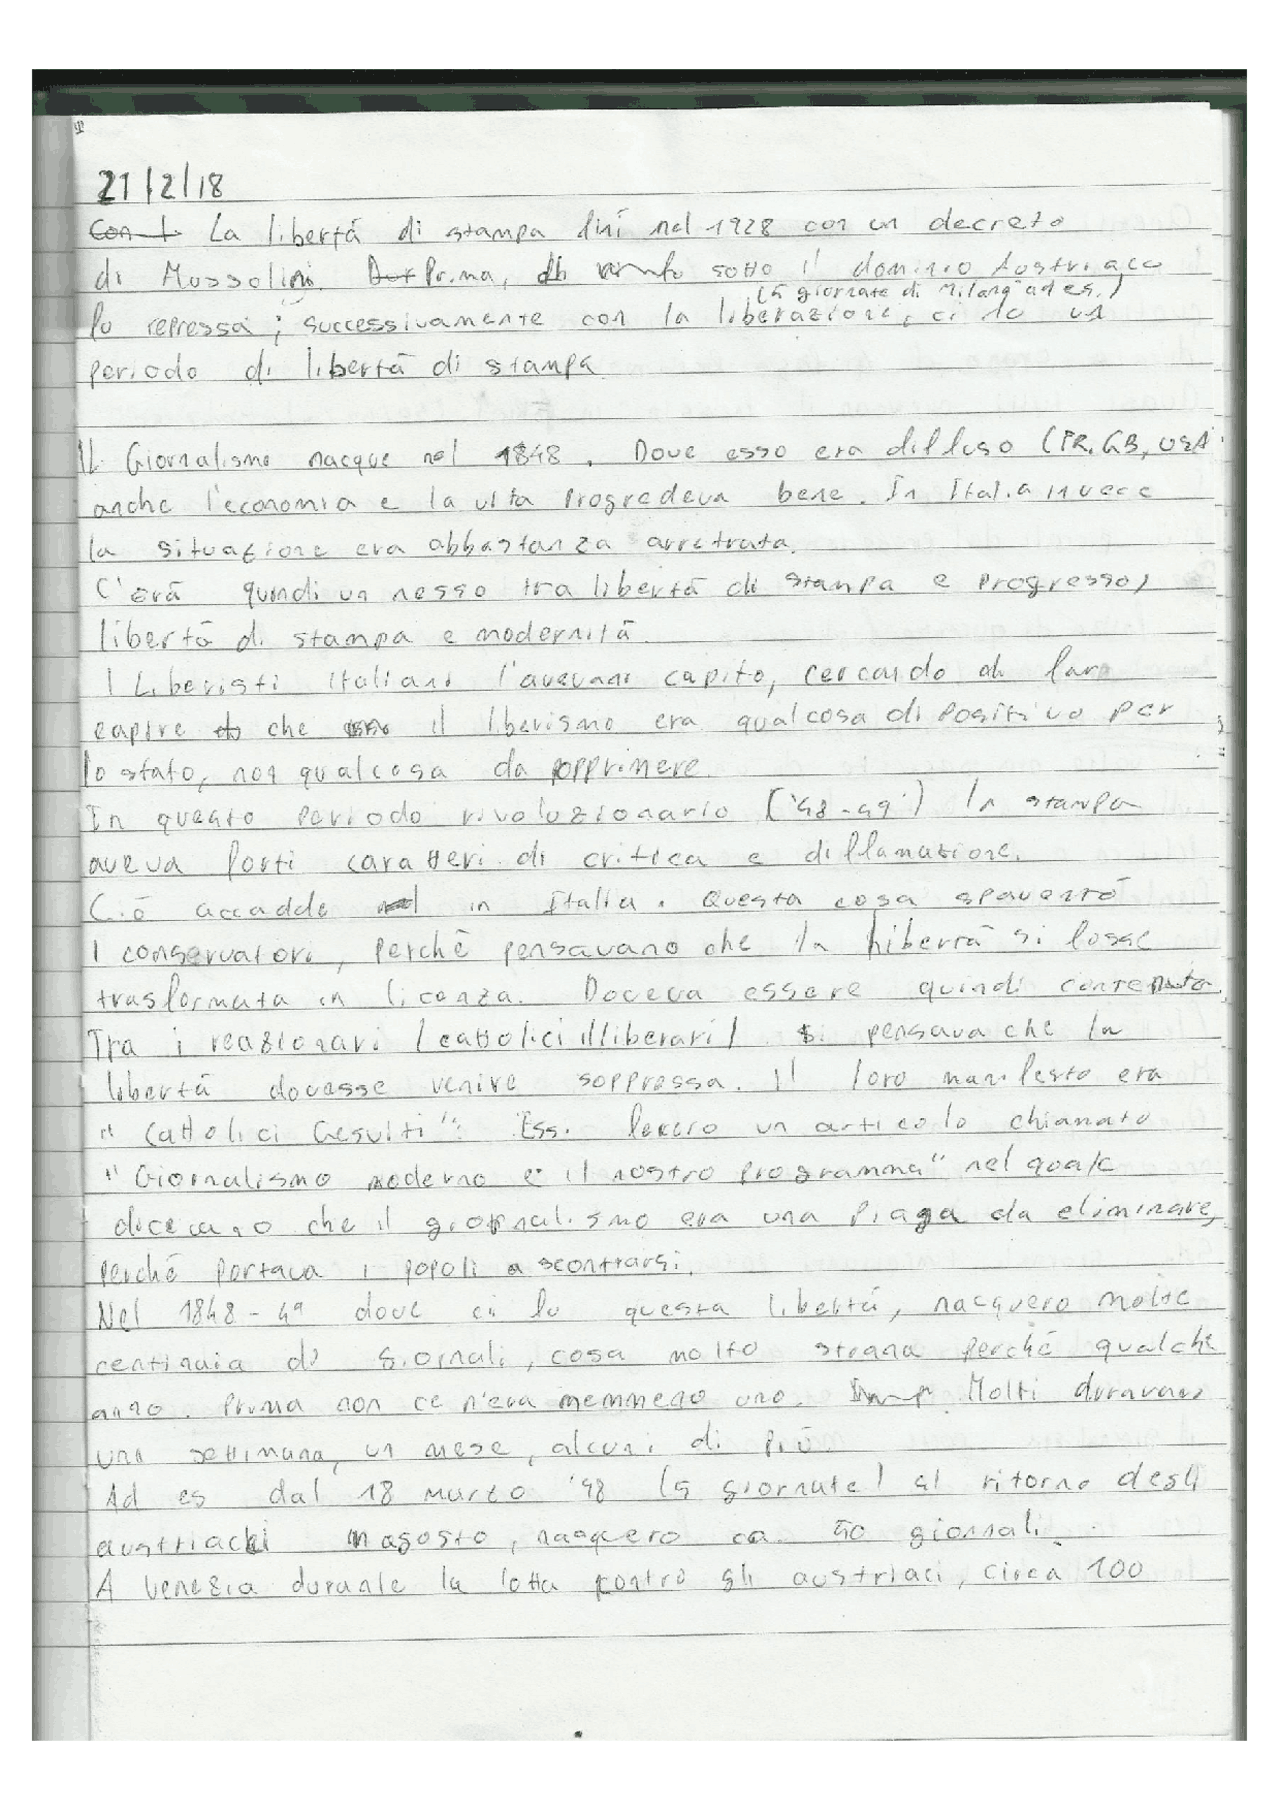 21/2/18
Con l La libertà di stampa finì nel 1928 con un decreto
di Mussolini. Prima, sotto il dominio Austriaco
(5 giornate di Milano ad es.)
fu repressa; successivamente con la liberazione, ci fu un
periodo di libertà di stampa
IL Giornalismo nacque nel 1848. Dove esso era diffuso (FR, GB, USA
anche l'economia e la vita progredeva bene. In Italia invece
la situazione era abbastanza arretrata.
C'erà quindi un nesso tra libertà di stampa e progresso,
libertà di stampa e modernità.
I Liberisti italiani l'avevano capito, cercando di fare
capire che il liberismo era qualcosa di positivo per
lo stato, non qualcosa da opprimere.
In questo periodo rivoluzionario ('48-49') la stampa
aveva forti caratteri di critica e diffamazione.
Ciò accadde in Italia. Questa cosa spaventò
I conservatori, perchè pensavano che la libertà si fosse
trasformata in licenza. Doceva essere quindi contenuta
Tra i reazionari (cattolici illiberari) si pensava che la
libertà dovesse venire soppressa. Il loro manifesto era
"Cattolici Gesuiti". Essi fecero un articolo chiamato
"Giornalismo moderno e il nostro programma" nel quale
dicevano che il giornalismo era una piaga da eliminare,
perchè portava i popoli a scontrarsi.
Nel 1848-49 dove ci fu questa libertà, nacquero molte
centinaia di giornali, cosa molto strana perchè qualche
anno. Prima non ce n'era nemmeno uno. Molti duravano
una settimana, un mese, alcuni di più.
Ad es dal 18 marzo '48 (5 giornate) al ritorno degli
austriachi in agosto, nacquero ca. 50 giornali.
A Venezia durante la lotta contro gli austriaci, circa 100